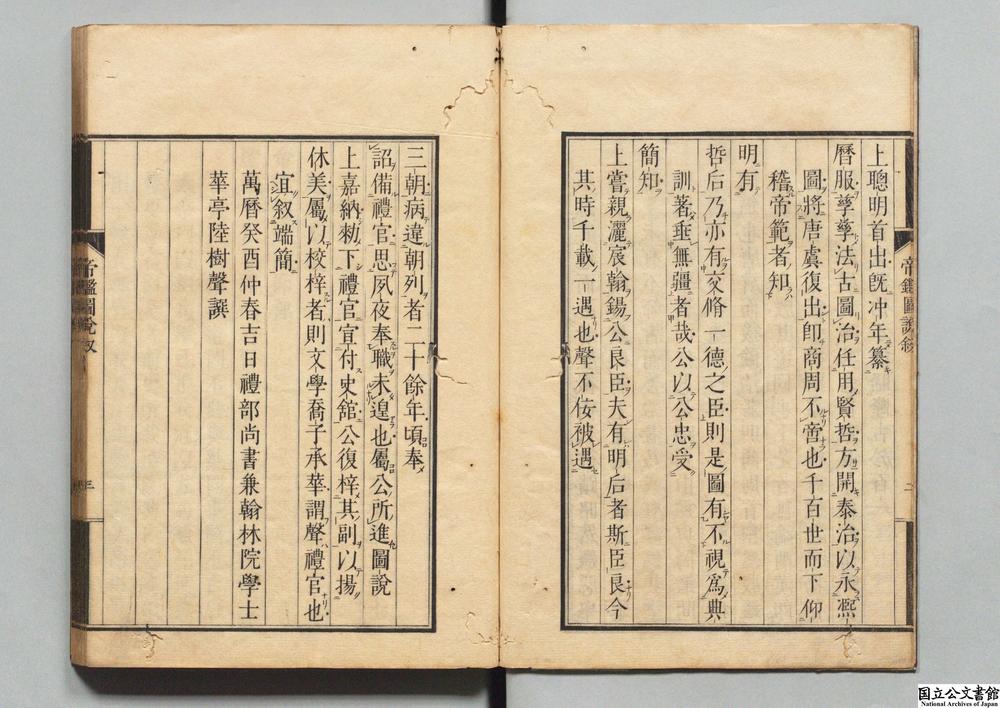 上聰明首出旣冲年纂
曆服孳孳法古圖治任用賢哲方開泰治以永熈
圖將唐虞復出卽商周不啻也千百世而下仰
稽帝範者知
明有
哲后乃亦有交脩一德之臣則是圖有不視爲典
訓著垂無疆者哉公以公忠受
簡知
上嘗親灑宸翰錫公良臣夫有明后者斯臣良今
其時千載一遇也聲不佞被遇
帝鑑圖說叙
二
三朝病違朝列者二十餘年頃奉
詔備禮官思夙夜奉職未遑也屬公所進圖說
上嘉納勑下禮官宣付史舘公復梓其副以揚
休美屬以校梓者則文學喬子承華謂聲禮官也
宜叙端簡
萬曆癸酉仲春吉日禮部尚書兼翰林院學士
華亭陸樹聲譔
帝鑑圖說叙
三
国立公文書館
National Archives of Japan